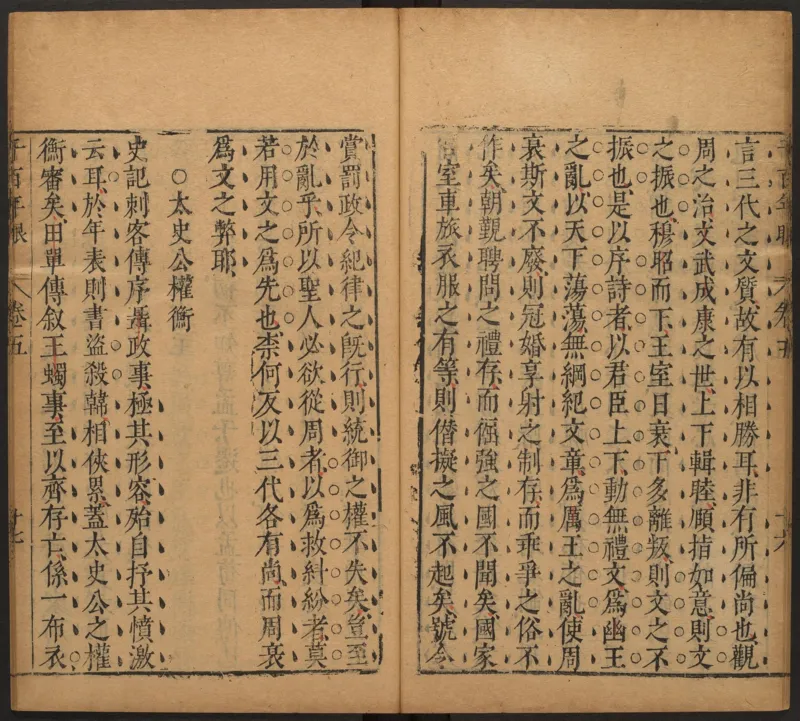 言三代之文質故有以相勝耳非有所偏尚也觀
周之治文武成康之世上下輯睦頤指如意則文
之振也穆昭而下王室日衰下多離叛則文之不
振也是以序詩者以君臣上下動無禮文爲幽王
之亂以天下蕩蕩無綱紀文章爲厲王之亂使周
衰斯文不廢則冠婚享射之制存而乖爭之俗不
作矣朝覲聘問之禮存而倔強之國不聞矣國家
室車旅衣服之有等則僭擬之風不起矣號令
卷五
十六
賞罰政令紀律之旣行則統御之權不失矣豈至
於亂乎所以聖人必欲從周者以爲救糾紛者莫
若用文之爲先也柰何反以三代各有尚而周衰
爲文之弊耶
○太史公權衡
史記刺客傳序聶政事極其形容殆自抒其憤激
云耳於年表則書盜殺韓相俠累蓋太史公之權
衡審矣田單傳叙王蠋事至以齊存亡係一布衣
百年眼
卷五
十七